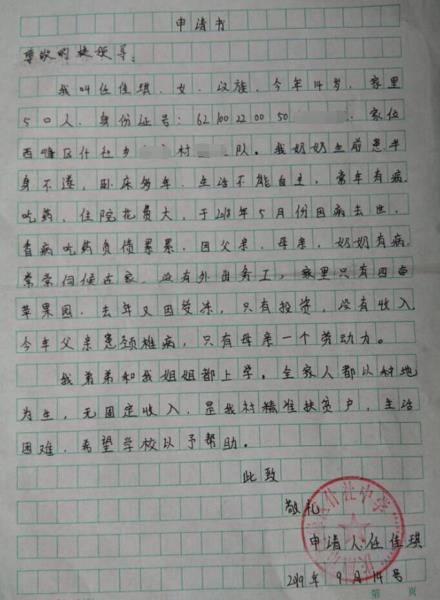 申请书
尊敬的校领导：
我叫任佳琪，女，汉族，今年14岁，家里
5口人，身份证号：621002200 50 家位
西峰区什社乡 村 队。我奶奶生前患半
身不遂，卧床多年，生活不能自主，常年有病
吃药，住院花费大，于2018年5月份因病去世，
看病吃药负债累累，因父亲，母亲，奶奶有病
常常伺候在家，没有外出务工，家里只有四亩
苹果园，去年又因受冻，只有投资，没有收入
今年父亲患颈椎病，只有母亲一个劳动力。
我弟弟和我姐姐都上学。全家人都以种地
为生，无固定收入，是我村精准扶贫户，生活
困难，希望学校以予帮助。
此致
敬礼
什社中学
申请人：任佳琪
2019年9月14号
第 页